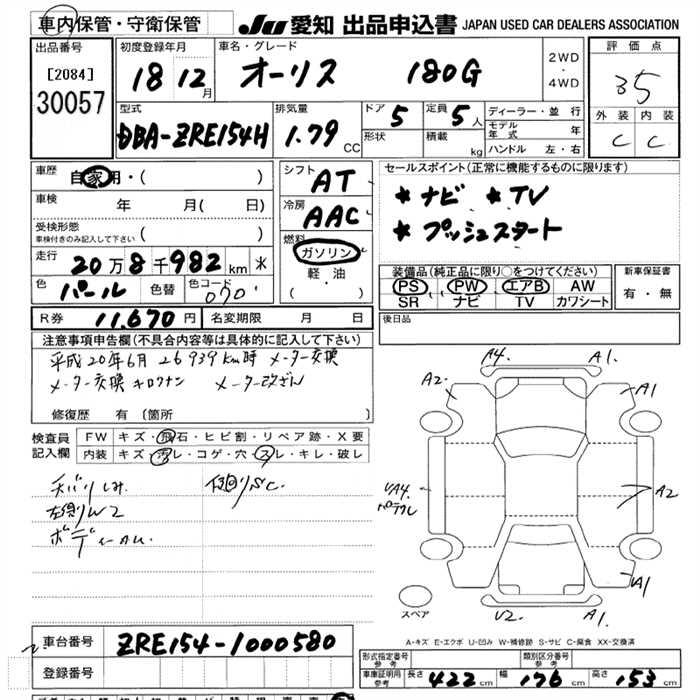 車内保管・守衛保管
JU 愛知 出品申込書 JAPAN USED CAR DEALERS ASSOCIATION
出品番号
[2084]
30057
初度登録年月
18 12月
車名・グレード
オーリス 180G
2WD
・
4WD
評価点
3.5
外装 内装
C C
型式
DBA-ZRE154H
排気量
1.79 CC
ドア 5
形状
定員 5人
積載 kg
ディーラー・並行
モデル年式 年
ハンドル 左・右
車歴
自家用・( )
車検 年 月( 日)
受検形態
車検付きのみ記入して下さい ( )
走行 20万8千982km
色 パール 色替 色コード 070
シフト AT
冷房 AAC
燃料
ガソリン
軽・油
( )
セールスポイント(正常に機能するものに限ります)
* ナビ * TV
* プッシュスタート
装備品(純正品に限り○をつけてください)
PS PW エアB AW
SR ナビ TV カワシート
新車保証書
有・無
R券 11,670円 名変期限 月 日
後日品
注意事項申告欄(不具合内容等は具体的に記入して下さい)
平成20年6月 26939km時 メーター交換
メーター交換キロクナシ メーター改ざん
修復歴 有 〔箇所 〕
検査員
記入欄
FW キズ・飛石・ヒビ割・リペア跡・X要
内装 キズ・汚レ・コゲ・穴・スレ・キレ・破レ
左側リW2
A4. A1.
A2. A1
A2
A1
V2. A1.
スペア
A-キズ E-エクボ U-凹み W-補修跡 S-サビ C-腐食 XX-交換済
車台番号 ZRE154-1000580
登録番号
形式指定番号
参考
類別区分番号
参考
車庫証明用
参考
長さ 422cm 幅 176cm 高さ 153cm